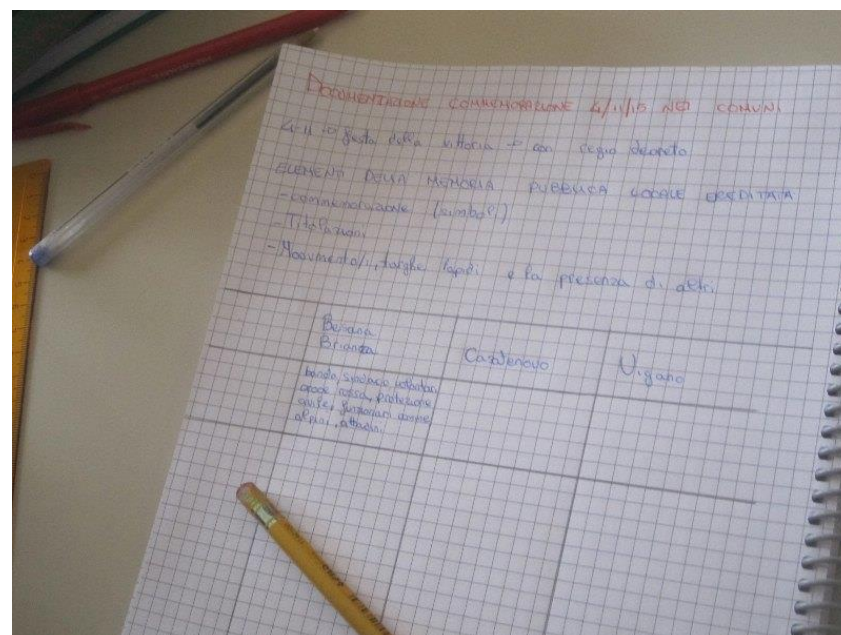 DOCUMENTAZIONE COMMEMORAZIONE 4/11/15 NEI COMUNI
4-11 festa della vittoria → con regio decreto
ELEMENTI DELLA MEMORIA PUBBLICA LOCALE EREDITATA
- commemorazione (simboli)
- Titolazioni
- Monumento/i, targhe lapidi e la presenza di altri
Besana
Brianza
Casatenovo
Viganò
banda, sindaco, volontari
croce rossa, protezione
civile, funzionari
alpini, cittadini